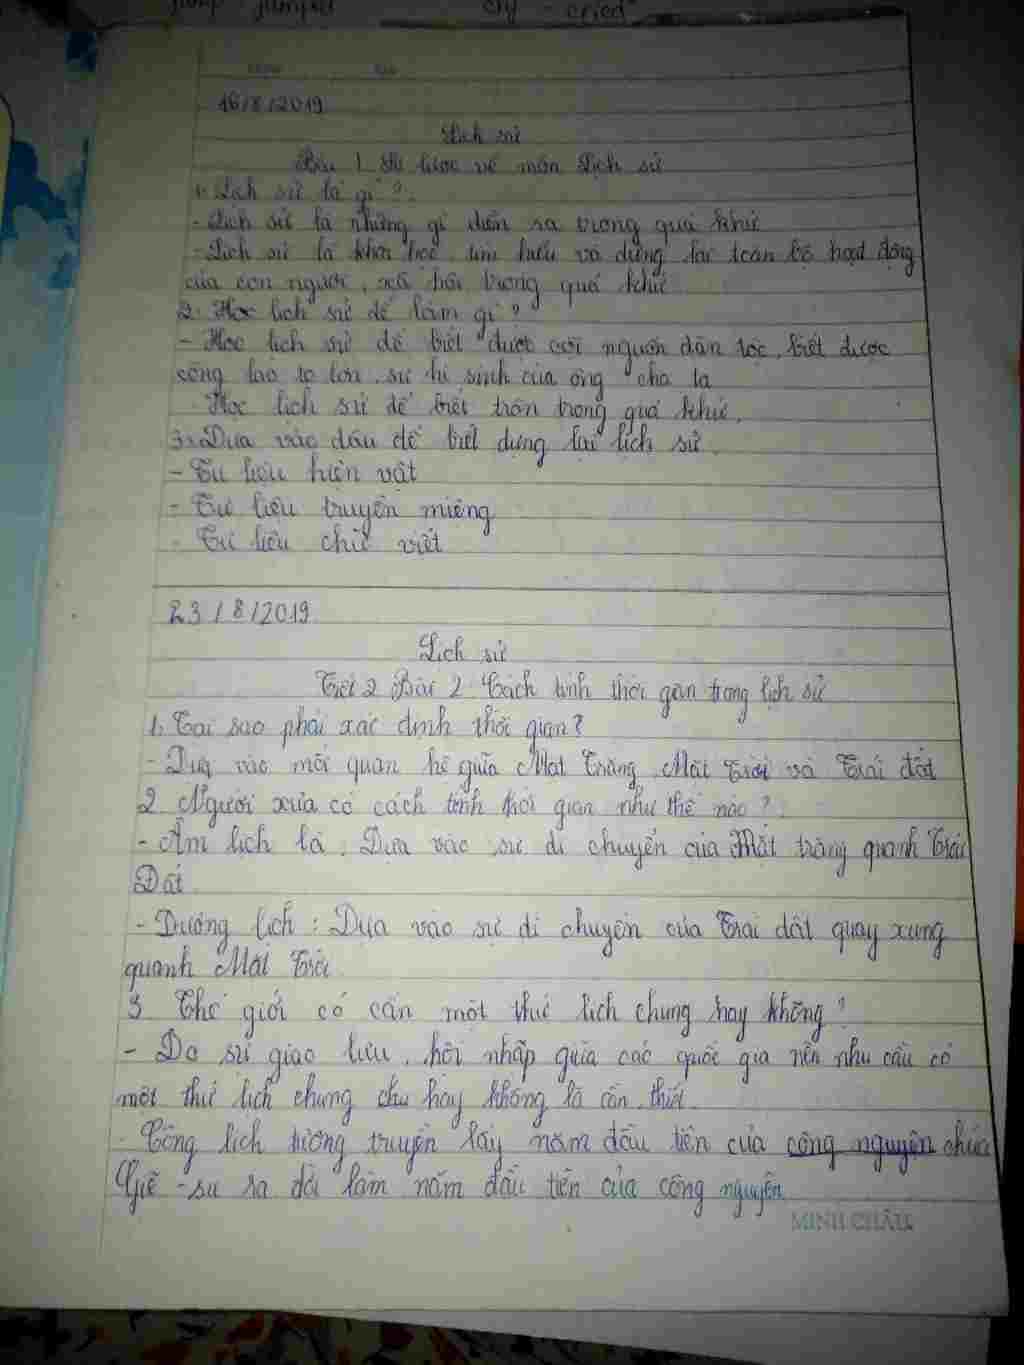 jump - jumped cry - cried
16/8/2019
Lịch sử
Bài 1 Sơ lược về môn Lịch sử
1. Lịch sử là gì?
- Lịch sử là những gì diễn ra trong quá khứ
- Lịch sử là khoa học, tìm hiểu và dựng lại toàn bộ hoạt động
của con người, xã hội trong quá khứ
2. Học lịch sử để làm gì?
- Học lịch sử để biết được cội nguồn dân tộc, biết được
công lao to lớn, sự hi sinh của ông cha ta
Học lịch sử để biết trân trong quá khứ.
3. Dựa vào đâu để biết dựng lại lịch sử.
- Tư liệu hiện vật
- Tư liệu truyền miệng
- Tư liệu chữ viết
23/8/2019
Lịch sử
Tiết 2 Bài 2 Cách tính thời gian trong lịch sử
1. Tại sao phải xác định thời gian?
- Dựa vào mối quan hệ giữa Mặt Trăng, Mặt Trời và Trái đất
2 Người xưa có cách tính thời gian như thế nào?
- Âm lịch là: Dựa vào sự di chuyển của Mặt trăng quanh Trái
Đất.
- Dương lịch: Dựa vào sự di chuyển của Trái đất quay xung
quanh Mặt Trời
3 Thế giới có cần một thứ lịch chung hay không?
- Do sự giao lưu, hội nhập giữa các quốc gia nên nhu cầu có
một thứ lịch chung hay không là cần thiết.
- Công lịch tương truyền lấy năm đầu tiên của công nguyên chúa
Giê-su ra đời làm năm đầu tiên của công nguyên
MINH CHÂU